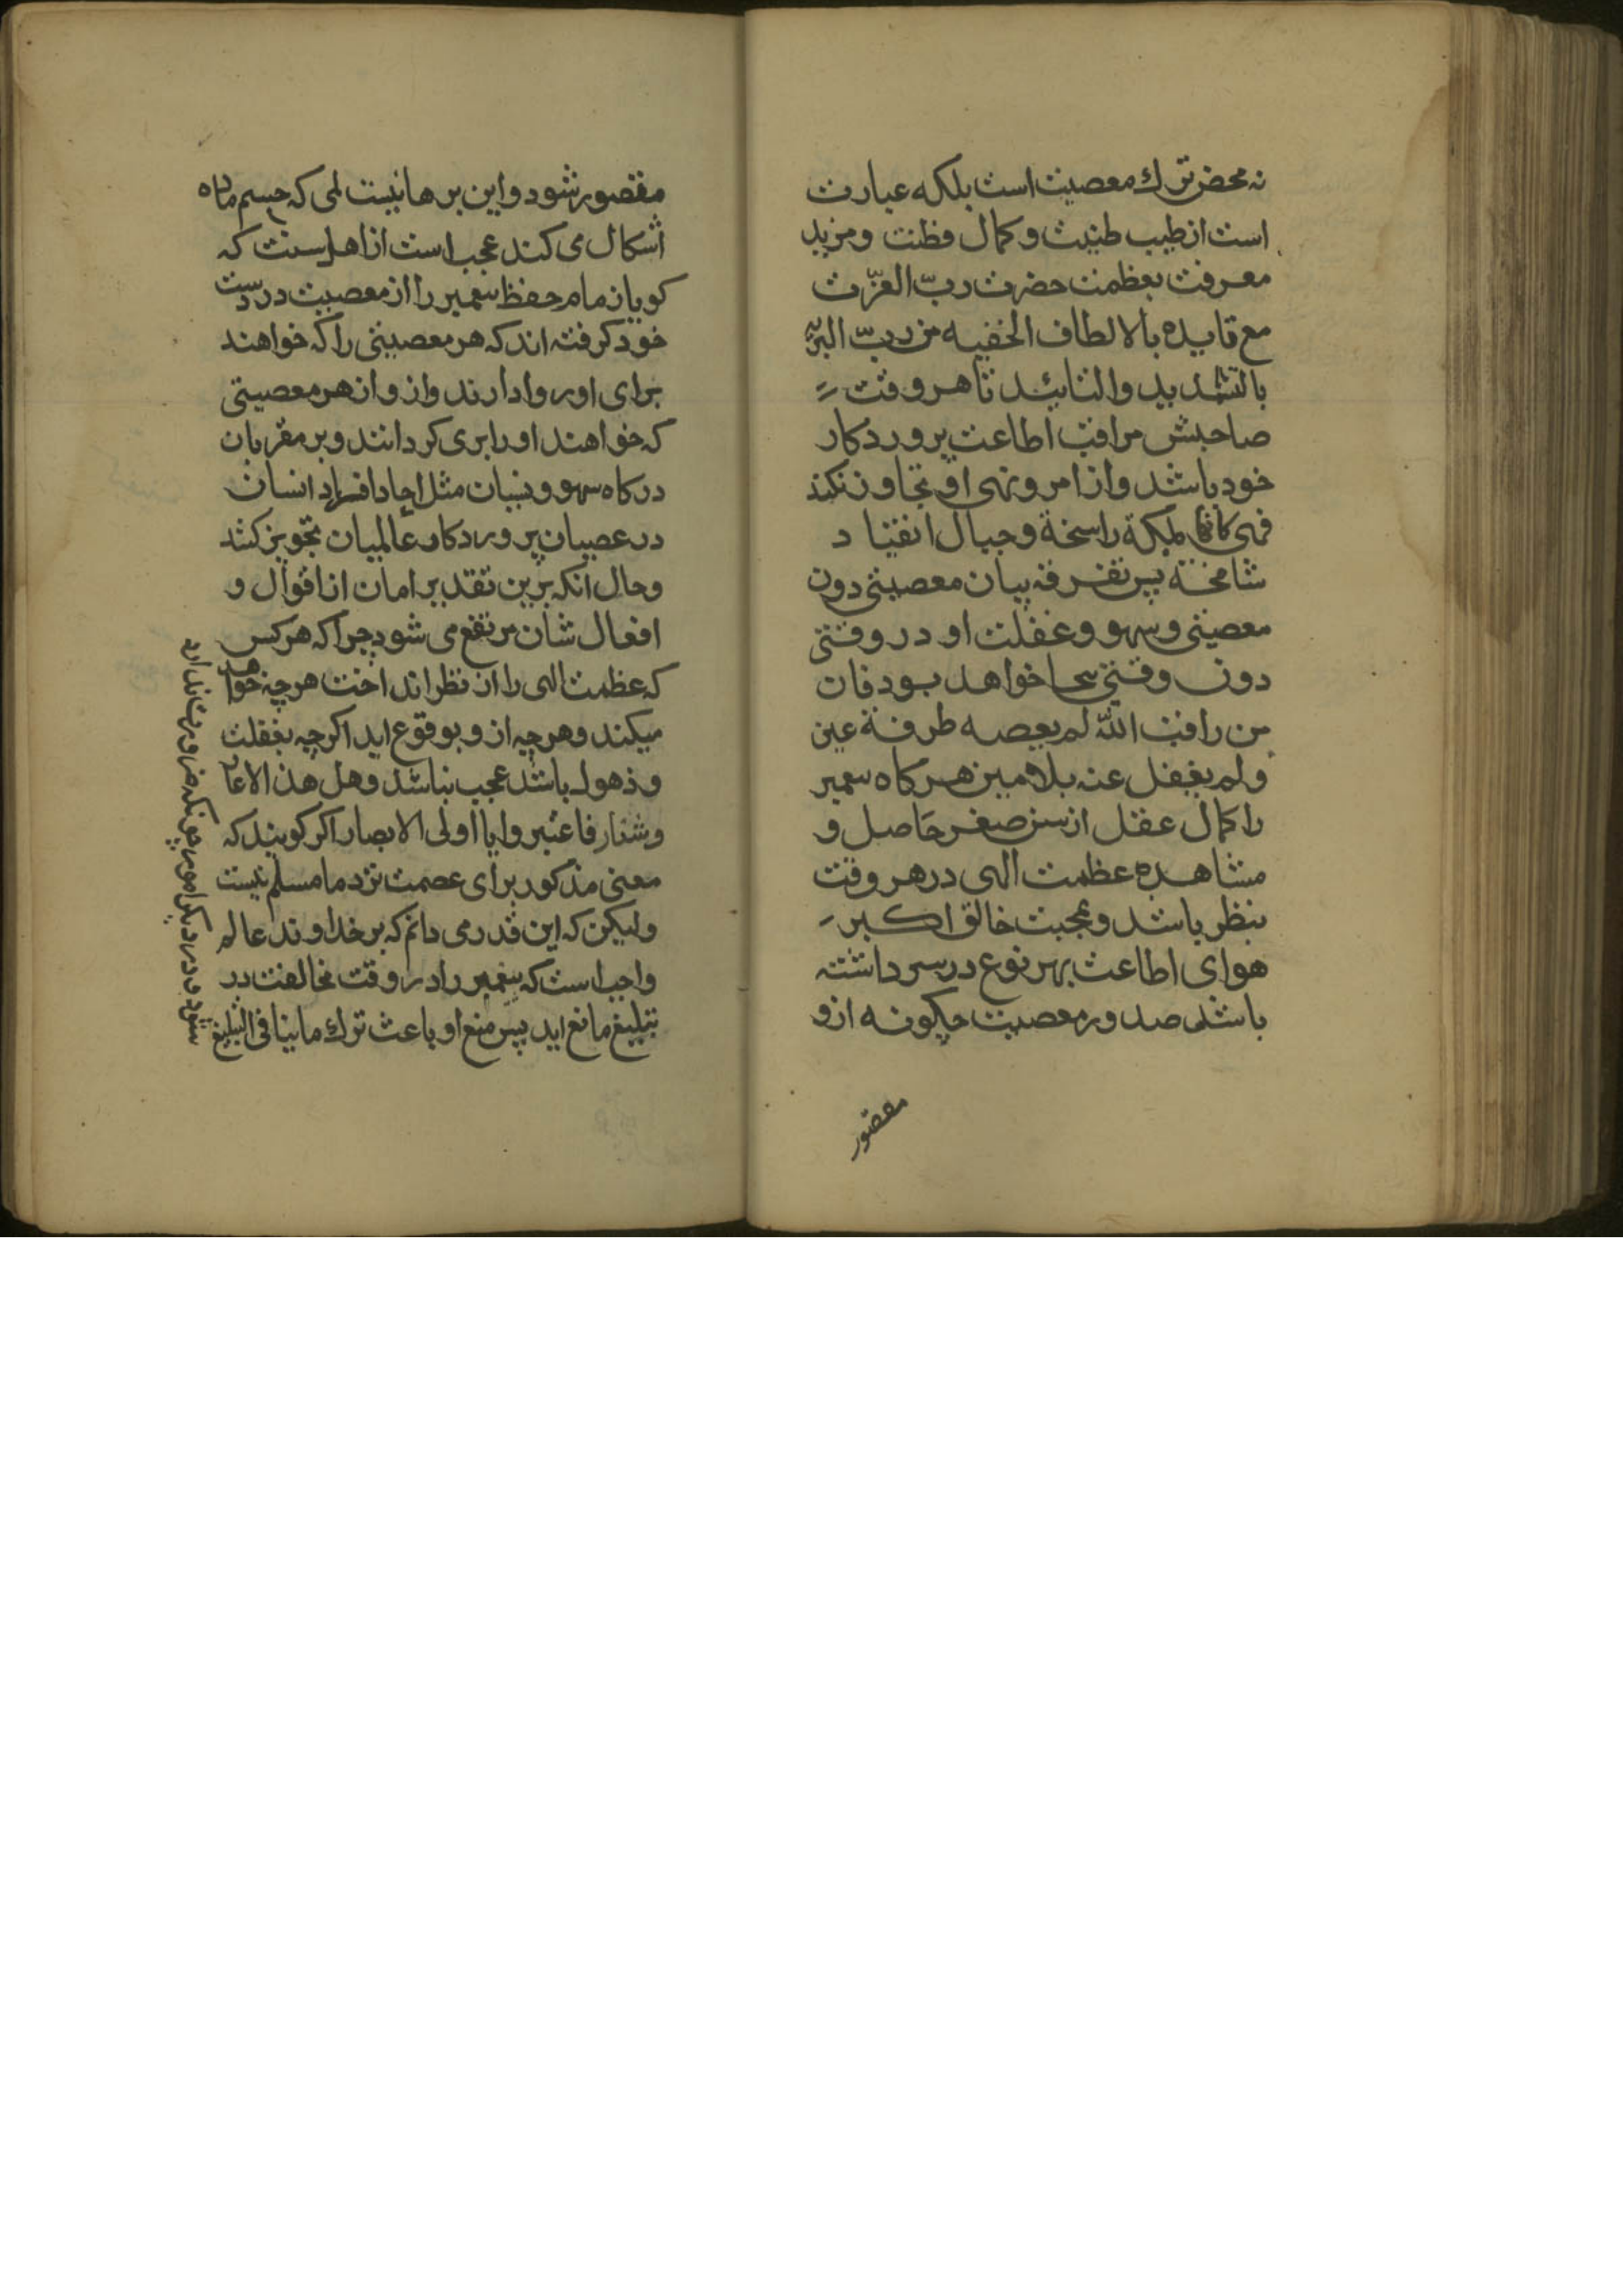 نه محض ترك معصیت است بلکه عبارت
است از طیب طینت و کمال فطنت و مزید
معرفت بعظمت حضرت ربّ العزّت
مع تاییده بالالطاف الخفیه من ربّ البریّه
بالتشدید والتائید تا هر وقت
صاحبش مراقب اطاعت پروردکار
خود باشد و از امر و نهی او تجاوز نکند
فهی کانها ملکة راسخة و جبال انقیاد
شامخة پس تفرقه بیان معصیتی دون
معصیتی و سهو و غفلت او در وقتی
دون وقتی بیجا خواهد بود فان
من راقب اللّه لم یعصه طرفة عین
ولم یغفل عنه بلا مین هرکاه پیغمبر
را کمال عقل از سن صغر حاصل و
مشاهده عظمت الهی در هر وقت
بنظر باشد و محبت خالق اکبر
هوای اطاعت بهر نوع در سر داشته
باشد صدور معصیت چکونه ازو
مقصور
مقصور شود و این برهانیست لمی که حسم ماده
اشکال می کند عجب است از اهل سنت که
کویا زمام حفظ پیغمبر را از معصیت در دست
خود کرفته اند که هر معصیتی را که خواهند
برای او روا دارند و از هر معصیتی
که خواهند او را بری کردانند و بر مقربان
درکاه سهو و نسیان مثل احاد افراد انسان
در عصیان پروردکار عالمیان تجویز کنند
و حال آنکه برین تقدیر امان از اقوال و
افعال شان مرتفع می شود چرا که هر کس
که عظمت الهی را از نظر انداخت هر چه خواهد
میکند و هر چه از و بوقوع اید اکر چه بغفلت
و ذهول باشد عجب نباشد وهل هذا الا عار
وشنار فاعتبروا یا اولی الابصار اکر کویند که
معنی مذکور برای عصمت نزد ما مسلم نیست
ولیکن که این قدر می دانم که بر خداوند عالم
واجب است که پیغمبر را در وقت مخالفت در
تبلیغ مانع اید پس منع او باعث ترك ماینافی التبلیغ
شود و در دیکر امور چونکه ضرورت ندارد